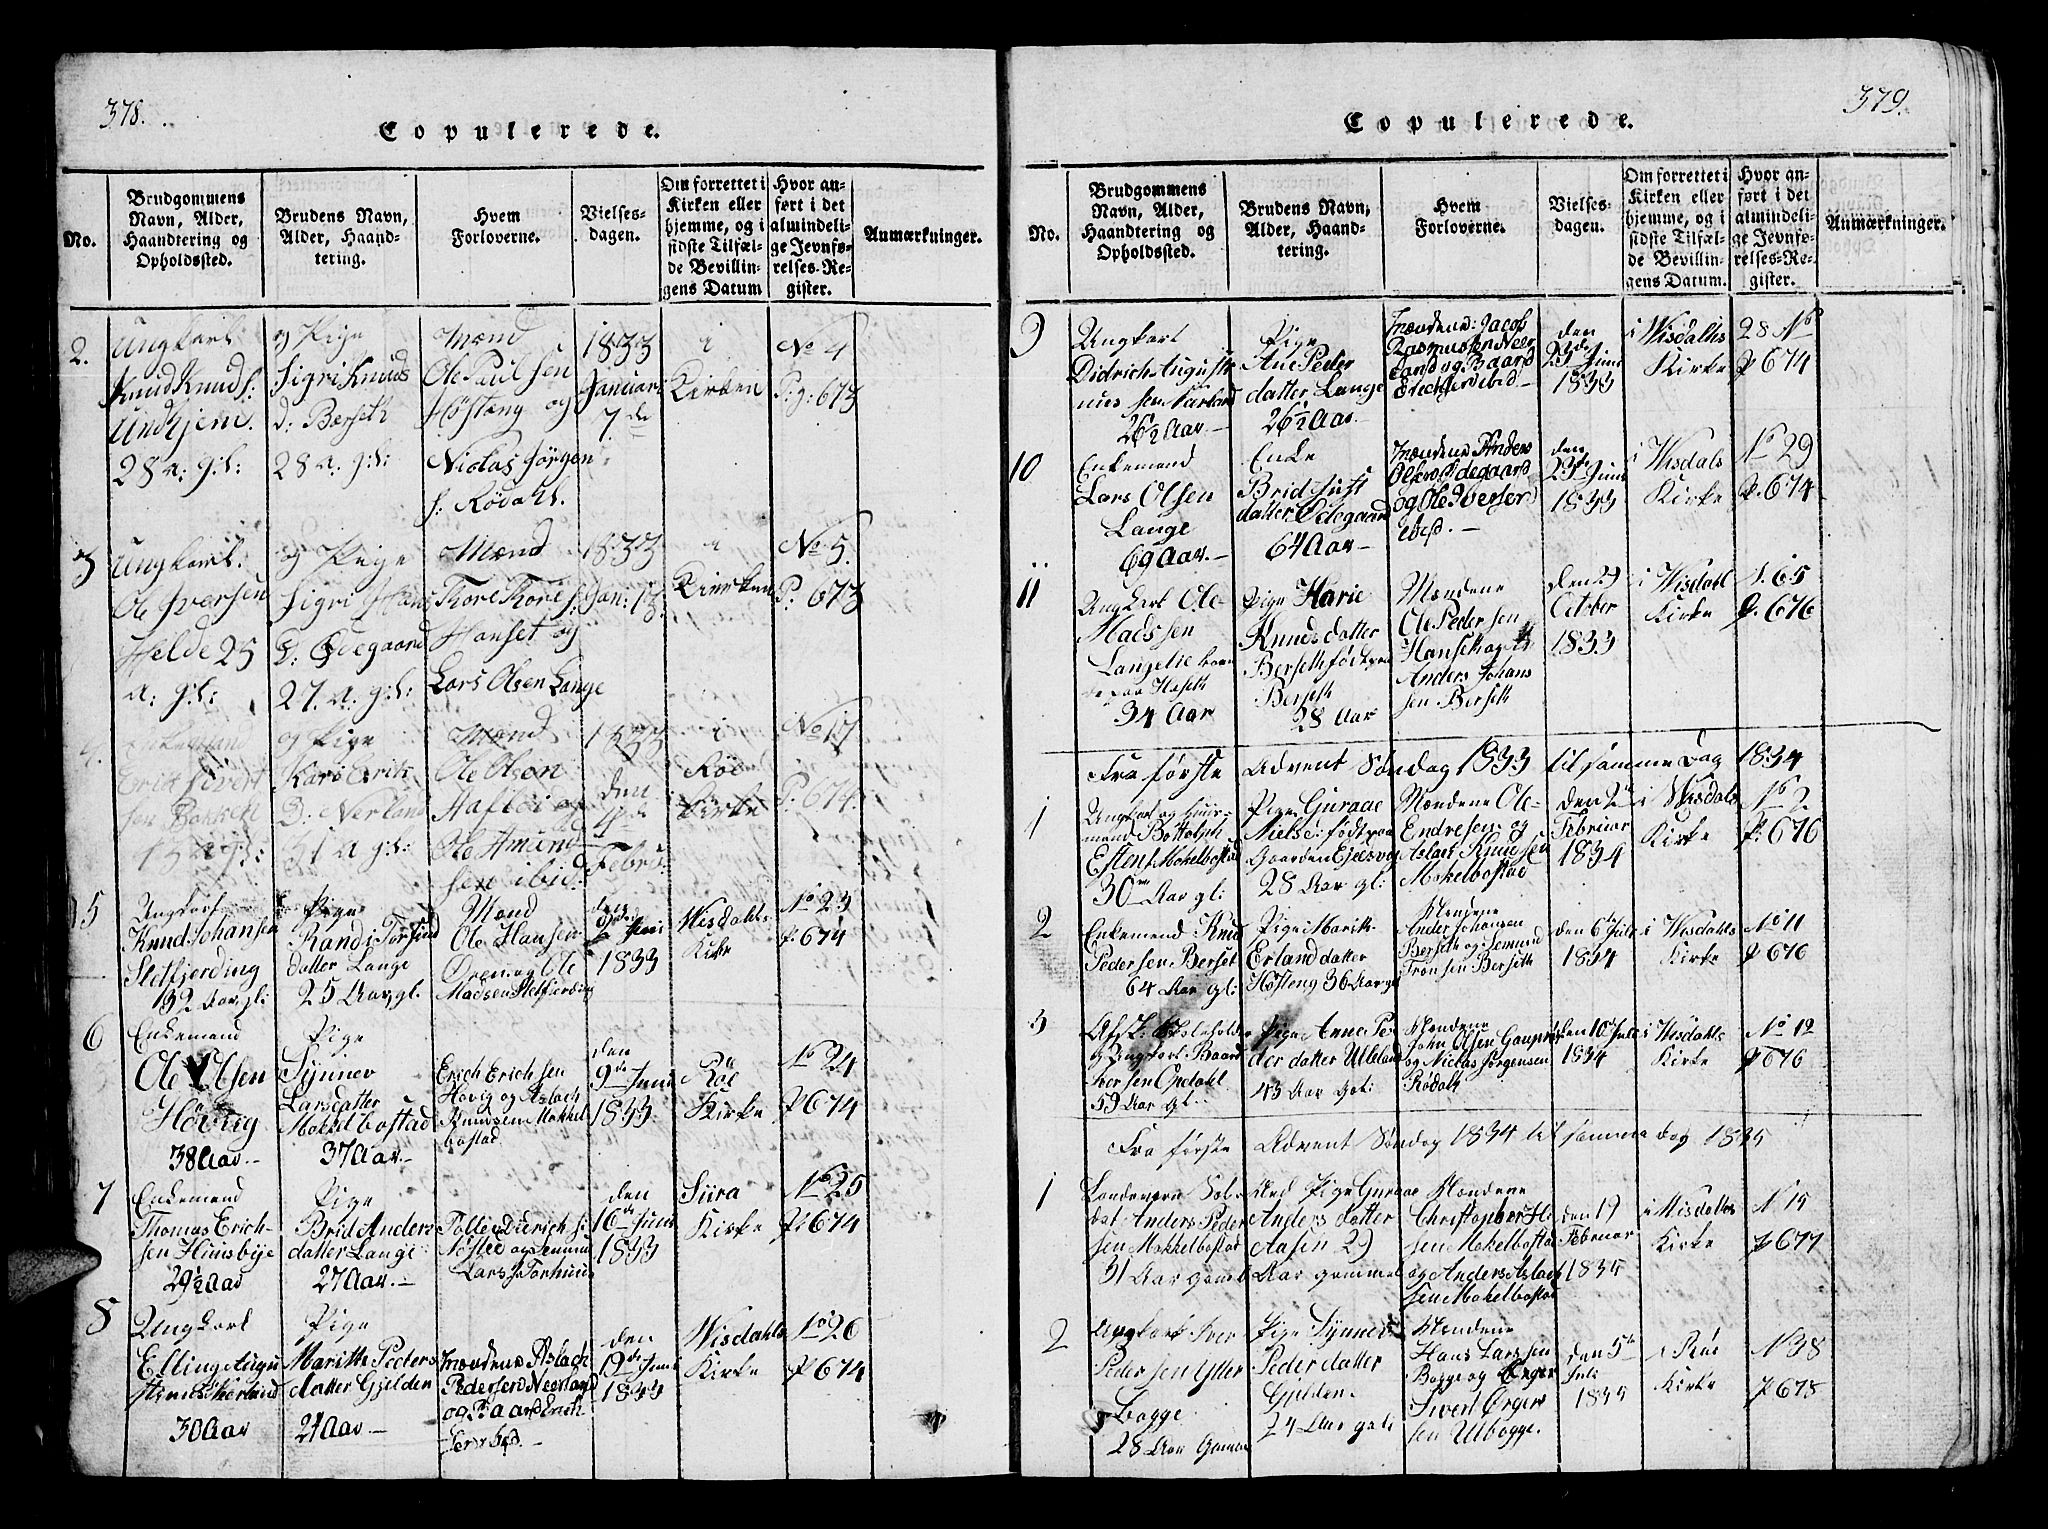 378.
Copulerede.
No.
Brudgommens
Navn, Alder,
Haandtering og
Opholdssted.
Brudens Navn,
Alder, Haand-
tering.
Hvem
Forloverne.
Vielses-
dagen.
Om forrettet i
Kirken eller
hjemme, og i
sidste Tilfæl-
de Bevillin-
gens Datum
Hvor an-
ført i det
almindeli-
ge Jevnfø-
relses-Re-
gister.
Anmærkninger.
2.
Ungkarl
Knud Knuds:
28 a: g:l:
og Pige
Sigri Knuds
d: Berseth
28 a. g:l:
Mænd
Ole Paulsen
Høsteng og
Nicolas Jørgen
s: Rødahl.
1833
Januari
7de
i
Kirken
No 4
Pg: 673
3
Ungkarl
Ole Iversen
Helde 25
a: g:l:
og Pige
Sigri Hans
D: Ødegaard
27. a. g:l:
Mænd
Thore Thore s:
Hanset og
Lars Olsen Lange
1833
Jan: 13
i
Kirken
No 5.
P: 673
4.
Enkemand
Erik Sivert
sen Bakken
og Pige
Kari Eriks
D: Nerland
31 a g:l:
Mænd
Ole Olsen
og
Ole Amund
sen ibid:
1833
den
4de
Febru:
i
Röe
Kirke
No 17
P: 674.
5
Ungkarl
Knud Johansen
Sletfjerding
32 Aar gl:
Pige
Randi Torsteind
datter Lange
25 Aar gl.
Mænd
Ole Hansen
og Ole
Madsen Sletfjerding
den
9de Juni
1833
Wisdahls
Kirke
No 23
P. 674
6
Enkemand
Ole Olsen
Høvrig
38 Aar.—
Pige
Synnev
Larsdatter
Mokkelbostad
37 Aar.—
Erich Erichsen
Hovig og Aslach
Knudsen Mokkel
bostad
den
9de Juni
1833
Röe
Kirke
No 24
P 674
7
Enkemand
Thomas Erich-
sen Huusbye
29½ Aar
Pige
Brid Anders
datter Lange
27 Aar.—
Didrich s:
den
16de Juni
1833
Siira
Kirke
No 25
P 674
8
Ungkarl
Elling Augu
30 Aar
Pige
Marithe Peders
datter Gjelden
21 Aar.—
Mændene Aslach
Pedersen Neerland
og Baard Erich-
sen ibid.—
den
19de Juni
1833
Wisdahls
Kirke
No 26
P 674
379.
Copulerede.
No.
Brudgommens
Navn, Alder,
Haandtering og
Opholdssted.
Brudens Navn,
Alder, Haand-
tering.
Hvem
Forloverne.
Vielses-
dagen.
Om forrettet i
Kirken eller
hjemme, og i
sidste Tilfæl-
de Bevillin-
gens Datum.
Hvor an-
ført i det
almindeli-
ge Jevnfø-
relses-Re-
gister.
Anmærkninger.
9
Ungkarl
Didrich Augusti
nus sen Karland
26½ Aar.—
Pige
Ane Peder
datter Lange
26½ Aar.
Mændene: Jacob
Rasmussen Neer
land og Baard
Erichsen ibid—
den
23de Juni
1833
i Wisdahls
Kirke
28 No
P 674
10
Enkemand
Lars Olsen
Lange
69 Aar.—
Enke
Brid Just
datter Ødegaard
64 Aar—
Mændene Anders
Olsen Ødegaard
og Ole Iversen
ibid.—
den
23de Juni
1833
i Wisdals
Kirke
No 29
P. 674
11
Ungkarl Ole
Madssen
34 Aar
Pige Marie
Knudsdatter
Berseth født paa
Berseth
28 Aar
Mændene
Ole Pedersen
Hanseth og
Anders Johans
sen Berseth
den 29
October
1833
i Wisdahl
Kirke
N. 65
P. 676
Fra første Advent Søndag 1833 til samme Dag 1834
1
Ungkarl og Huus-
mand Bottolph
Estens Mokelbostad
30 Aar gl:
Pige Guraae
Nielsd: født paa
Gaarden Ejelsvog
28 Aar gl:
Mændene Ole
Endresen og
Aslak Knudsen
Mokelbostad
Den 2de
Februar
1834
i Wisdals
Kirke
No 2
P: 676
2
Enkemand Knud
Pedersen Berset
64 Aar gl:
Pige Marith
Erlanddatter
Høsteng 36 Aar gl
Mændene
Anders Johansen
Berseth og Semund
Tronsen Berseth
den 6te Juli
1834
i Wisdahls
Kirke
No 11
P 676
3
og Ungkarl Baard
Iversen Opdahl
59 Aar gl.
Pige Anne Pe
derdatter Ulleland
43 Aar gl:
Mændene
John Olsen
og Niclas Jørgensen
Rødahl
den 10de Juli
1834
i Wisdahls
Kirke
No 12
P 676
Fra første Advent Søndag 1834 til samme Dag 1835
1
Landeværn Sol-
dat Anders Peder
sen Mokkelbostad
31 Aar gamel
Pige Guraae
Anders datter
Aasen 29
Aar gammel
Mændene
Christopher H
sen Mokelbostad
og Anders Aslach
sen Mokelbostad
den 19
Februar
1834
i Wisdahls
Kirke
N 15
P 677
2
Ungkarl Iver
Pedersen Ytter
Bogge
28 Aar Gamm
Pige Synnev
Peder datter
Gjelden.
24 Aar gl
Mændene
Hans Larssen
Bogge og Ørger
Sivert Ørger
sen Utbogge.
den 5te
Juli
1835
i Röe
Kirke
N 38
P 678